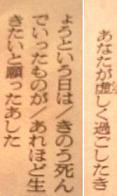 あなたが虚しく過ごしたき
ょうという日は/きのう死ん
でいったものが/あれほど生
きたいと願ったあした